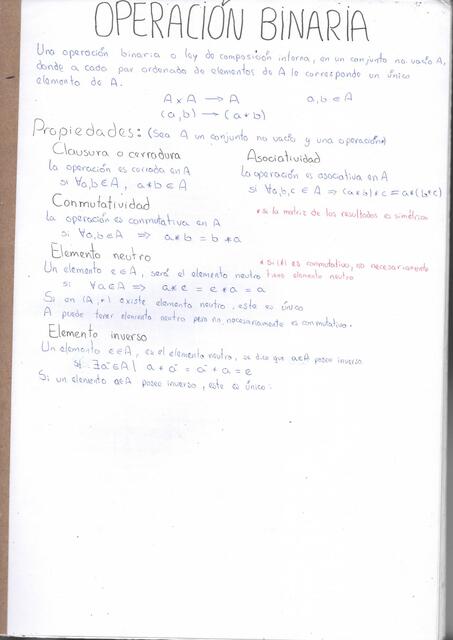 OPERACIÓN BINARIA
Una operación binaria o ley de composición interna, en un conjunto no vacío A,
donde a cada par ordenado de elementos de A le corresponde un único
elemento de A.
A x A → A a, b ∈ A
(a, b) → (a * b)
Propiedades: (Sea A un conjunto no vacío y una operación*)
Clausura o cerradura
La operación es cerrada en A
si ∀a,b ∈ A, a * b ∈ A
Asociatividad
La operación es asociativa en A
si ∀a,b,c ∈ A ⇒ (a * b) * c = a * (b * c)
Conmutatividad
La operación es conmutativa en A
si ∀a,b ∈ A ⇒ a * b = b * a
* si la matriz de los resultados es simétrica
Elemento neutro
* si (*) es conmutativo, no necesariamente
tiene elemento neutro
Un elemento e ∈ A, será el elemento neutro
si ∀a ∈ A ⇒ a * e = e * a = a
Si en (A, *) existe elemento neutro, este es único
A puede tener elemento neutro pero no necesariamente es conmutativo.
Elemento inverso
Un elemento e ∈ A, es el elemento neutro, se dice que a ∈ A posee inverso
si ∃a⁻ ∈ A | a * a⁻ = a⁻ * a = e
Si un elemento a ∈ A posee inverso, este es único.